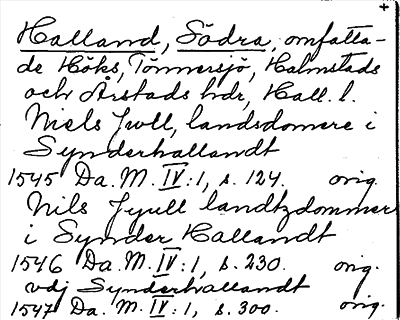 Halland, Södra, omfatta-
de Höks, Tönnersjö, Halmstads
och Årstads hdr, Hall. l.
Niels Jwll, landsdomere i
Synderhallandt
1545 Da. M. IV:1, s. 124. orig.
Nils Jyull landtzdommer
i Synder Hallandt
1546 Da. M. IV:1, s. 230. orig.
vdj Synderhallandt
1547 Da. M. IV:1, s. 300. orig.